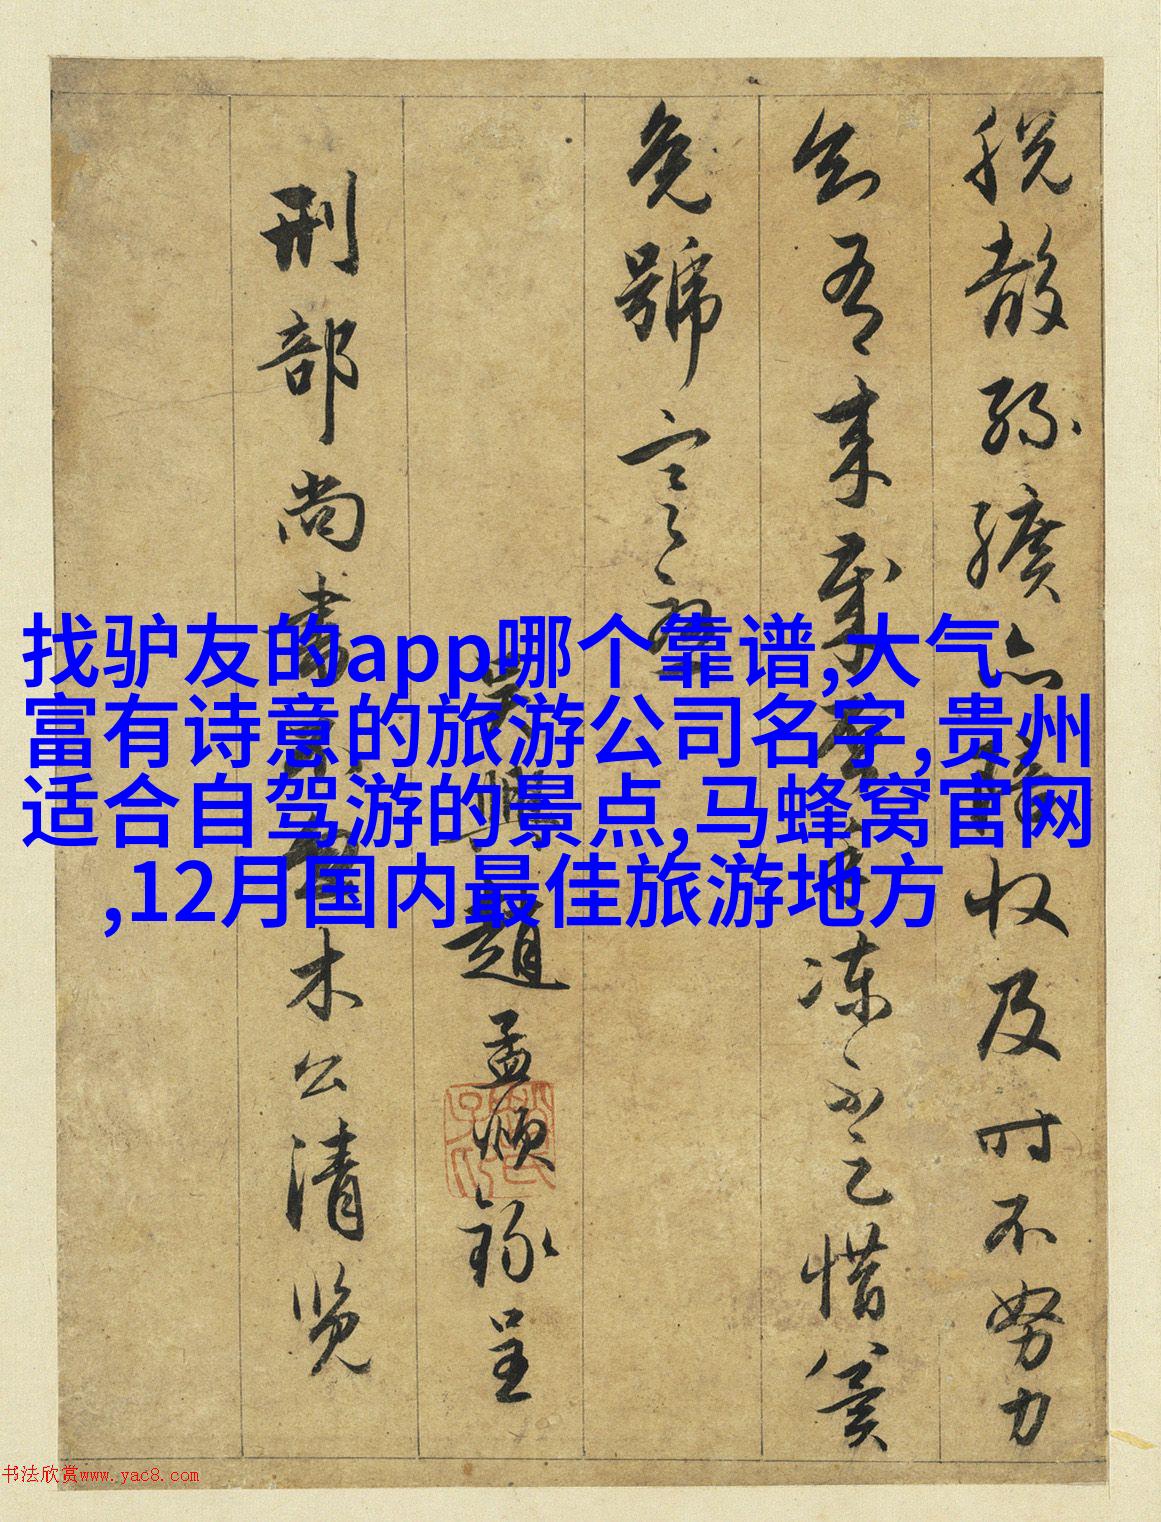 找驴友的app哪个靠谱,大气
富有诗意的旅游公司名字,贵州
适合自驾游的景点,马蜂窝官网
,12月国内最佳旅游地方
散絲纊亦收及时不努力
知有来歲手凍不足惜冀
免號寒
吴興趙孟頫錄呈
刑部尚書木公清覽
书法欣赏www.yac8.com